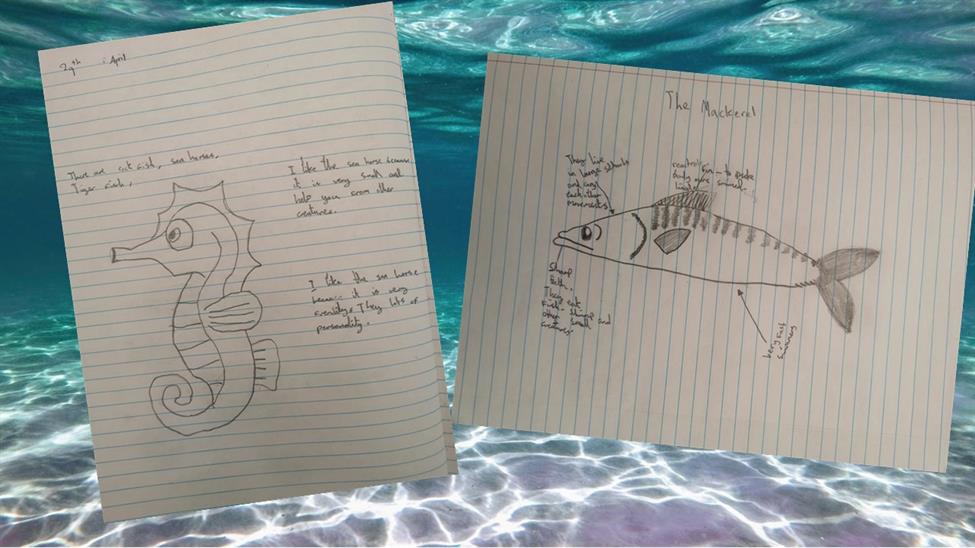 29th April
There are cat fish, sea horses,
Tiger fish,
I like the sea horse because
it is very small and
help you from other
creatures.
I like the sea horse
because it is very
friendly. They lots of
personality.
The Mackerel
They live
in large schools
and copy
each other
movements
fin - to make
body more
Sharp
teeth.
They eat
fish, shrimp and
other small
creatures
very fast
swimmers